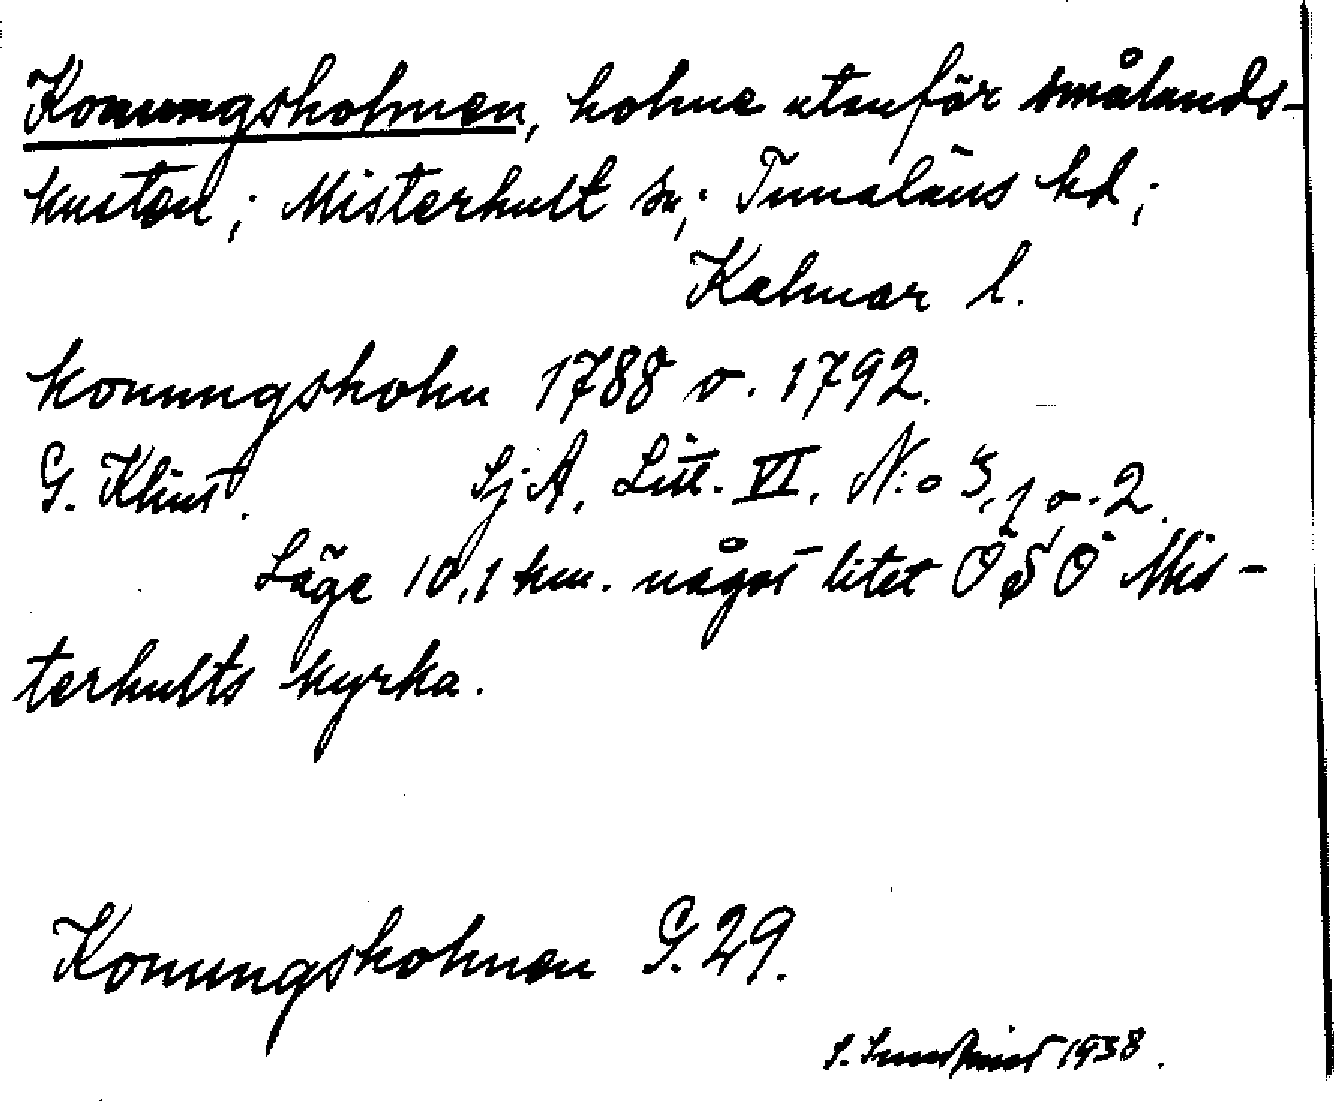 Konungsholmen, holme utenför smålands-
kusten; Misterhult sn; Tunaläns hd;
Kalmar l.
Konungsholm 1788 o. 1792.
G. Klint. Sj A. Litt. VI. N:o 3,1 o. 2.
Läge 10,1 km. något litet Ö S Ö Mis-
terhults kyrka.
Konungsholmen G. 29.
S. 1938.